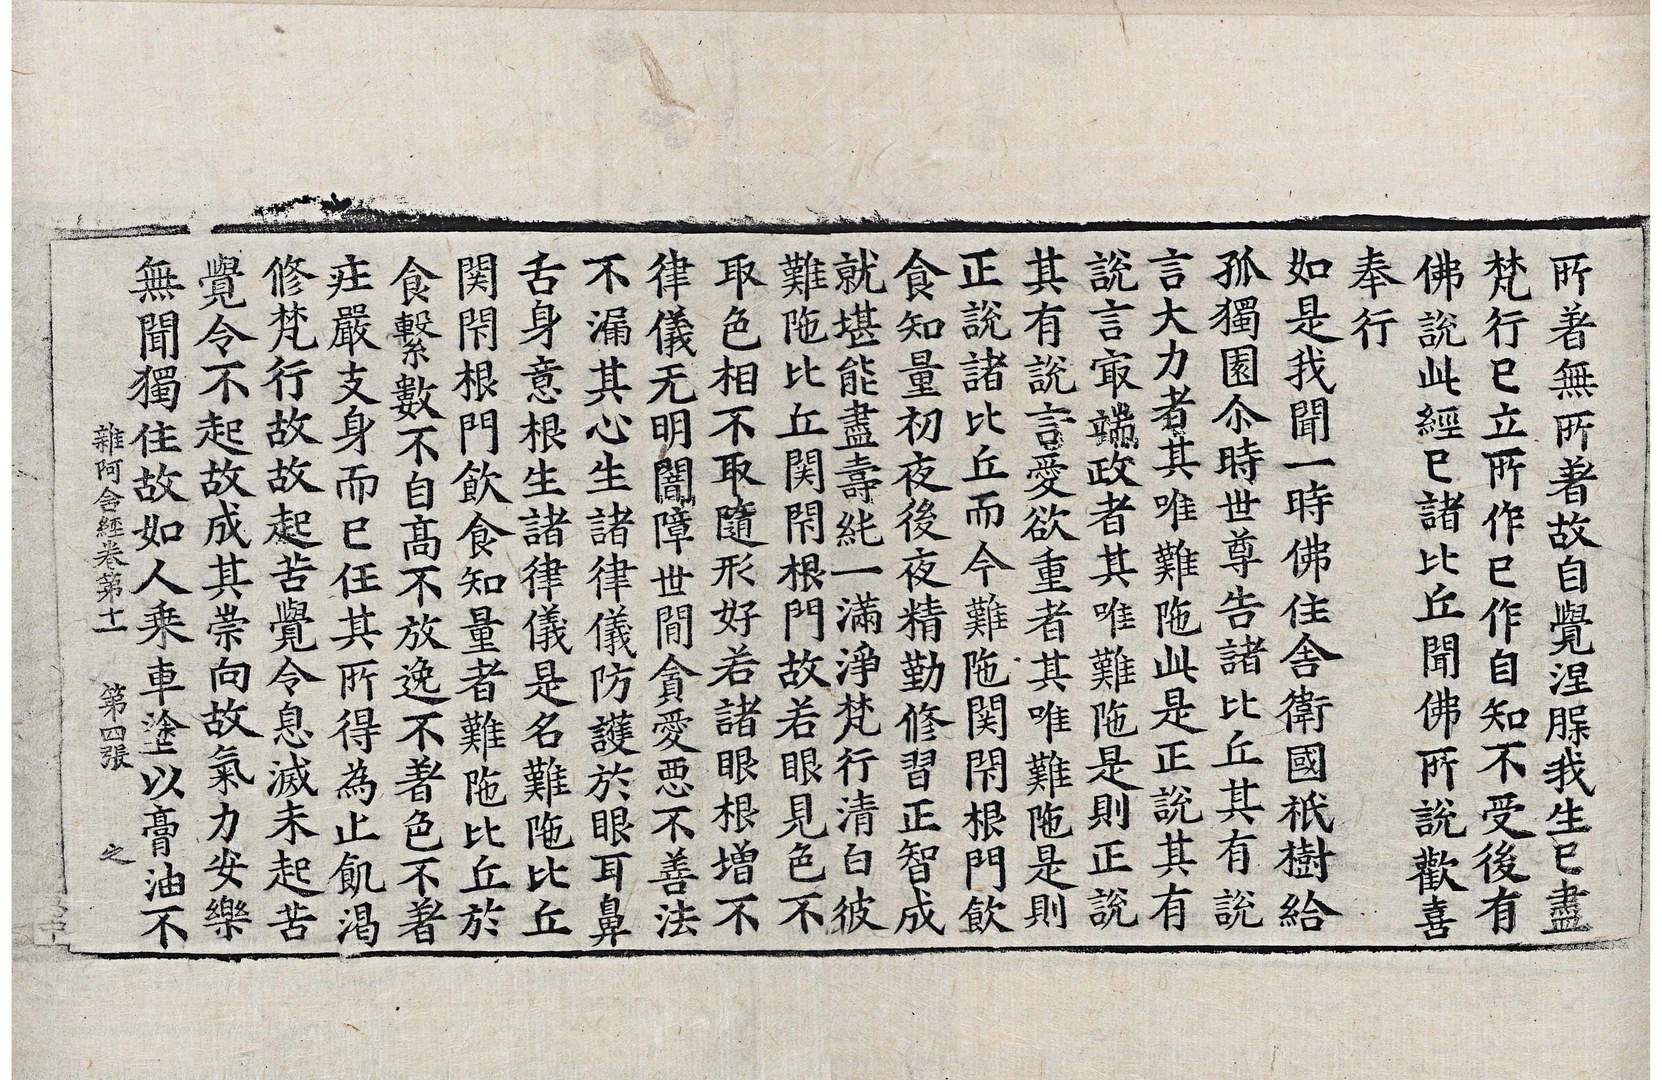 所著無所著故自覺涅槃我生已盡
梵行已立所作已作自知不受後有
佛說此經已諸比丘聞佛所說歡喜
奉行
如是我聞一時佛住舍衛國祇樹給
孤獨園尒時世尊告諸比丘其有說
言大力者其唯難陁此是正說其有
說言㝡端政者其唯難陁是則正說
其有說言愛欲重者其唯難陁是則
正說諸比丘而今難陁関閇根門飲
食知量初夜後夜精勤修習正智成
就堪能盡壽純一滿淨梵行清白彼
難陁比丘関閇根門故若眼見色不
取色相不取隨形好若諸眼根增不
律儀无明闇障世閒貪愛悪不善法
不漏其心生諸律儀防護於眼耳鼻
舌身意根生諸律儀是名難陁比丘
関閇根門飲食知量者難陁比丘於
食繫數不自高不放逸不著色不著
莊嚴支身而已任其所得為止飢渴
修梵行故故起苦覺令息滅未起苦
覺令不起故成其崇向故氣力安樂
無聞獨住故如人乗車塗以膏油不
雜阿含經卷第十一　第四張　之